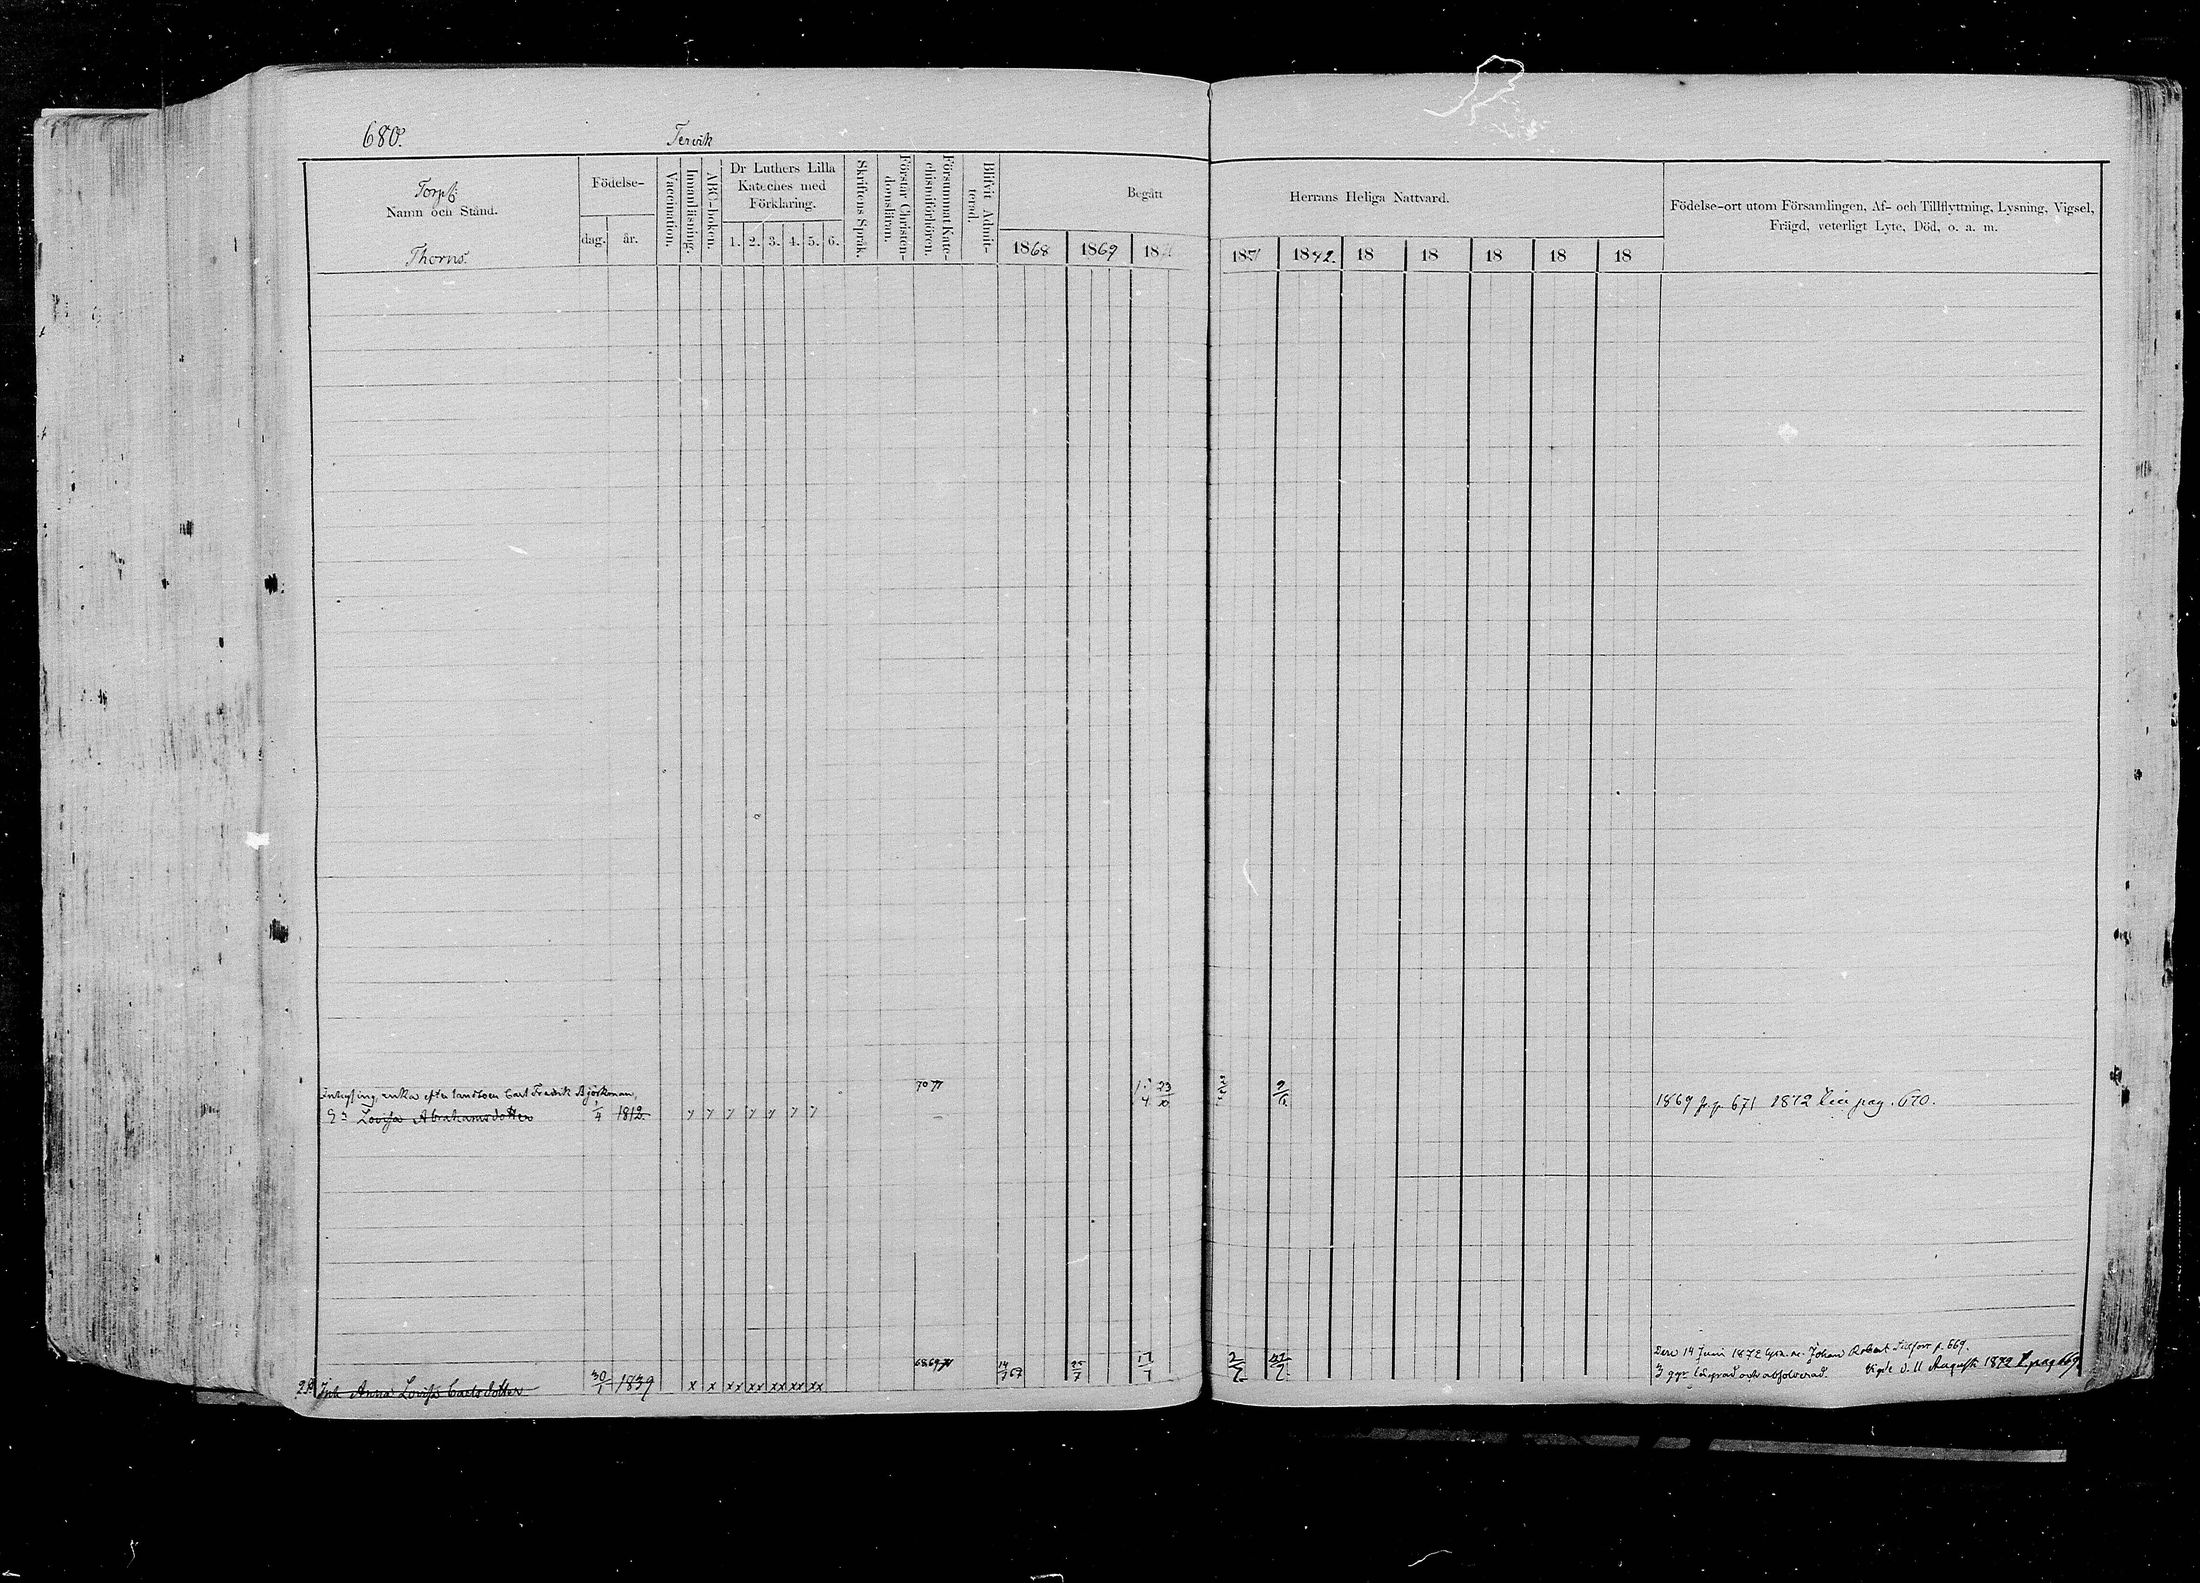 680.
Tervik
Torpf:
Namn och Stånd.
Thorns.
Födelse-
dag. år.
Vaccination.
Innanläsning.
ABC-boken.
Dr Luthers Lilla
Kateches med
Förklaring.
1. 2. 3. 4. 5. 6.
Skriftens Språk.
Förstår Christen-
domsläran.
Försummat Kate-
chismiförhören.
Blifvit Admit-
terad.
Begått
1868 1869 18
Herrans Heliga Nattvard.
1871 1872. 18 18 18 18 18
Födelse-ort utom Församlingen, Af- och Tillflyttning, Lysning, Vigsel,
Frägd, veterligt Lyte, Död, o. a. m.
enka efter Carl Fredrik Björkman,
Lovisa Abrahamsdotter 1/4 1812. 7 7 7 7 7 7 7
70 71
23/10
9/6
1869 fr. p. 671 1872 pag. 670.
Inh Anna Lovisa Carlsdotter 30/1 1839 x x xx xx xx xx xx
68.69.71
14/7 67 25/7 17/7 2/7
Den 14 Juni 1872 Johan Robert p. 669.
3 ggr och absolverad. Vigde d. 11 Augusti 1872 pag 669